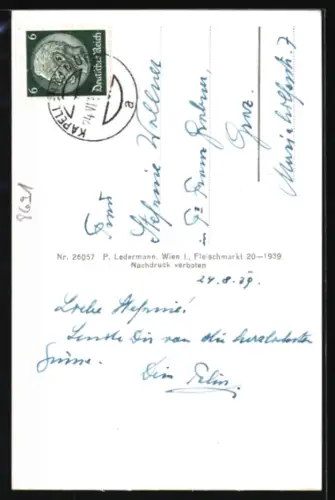 6
Deutsches Reich
KAPELL
a
Frau
Stefanie Wallner
Graz
8621
Nr. 26057 P. Ledermann, Wien I., Fleischmarkt 20—1939
Nachdruck verboten
24.8.39.
Liebe Stefanie!
Sende Dir von die herzlichsten
Grüsse.
Dein